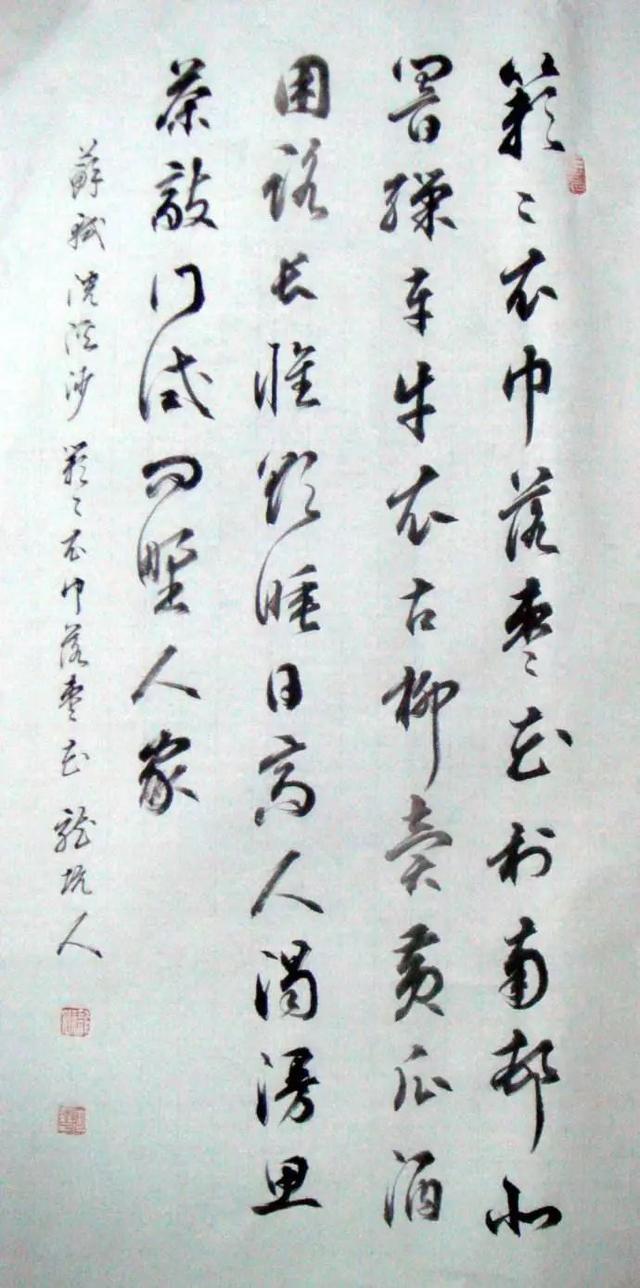 簌〻衣巾落枣花村南村北
响缲车牛衣古柳卖黄瓜酒
困路长惟欲睡日高人渴漫思
茶敲门试问野人家
蘇轼浣溪沙 簌〻衣巾落枣花 龍坑人